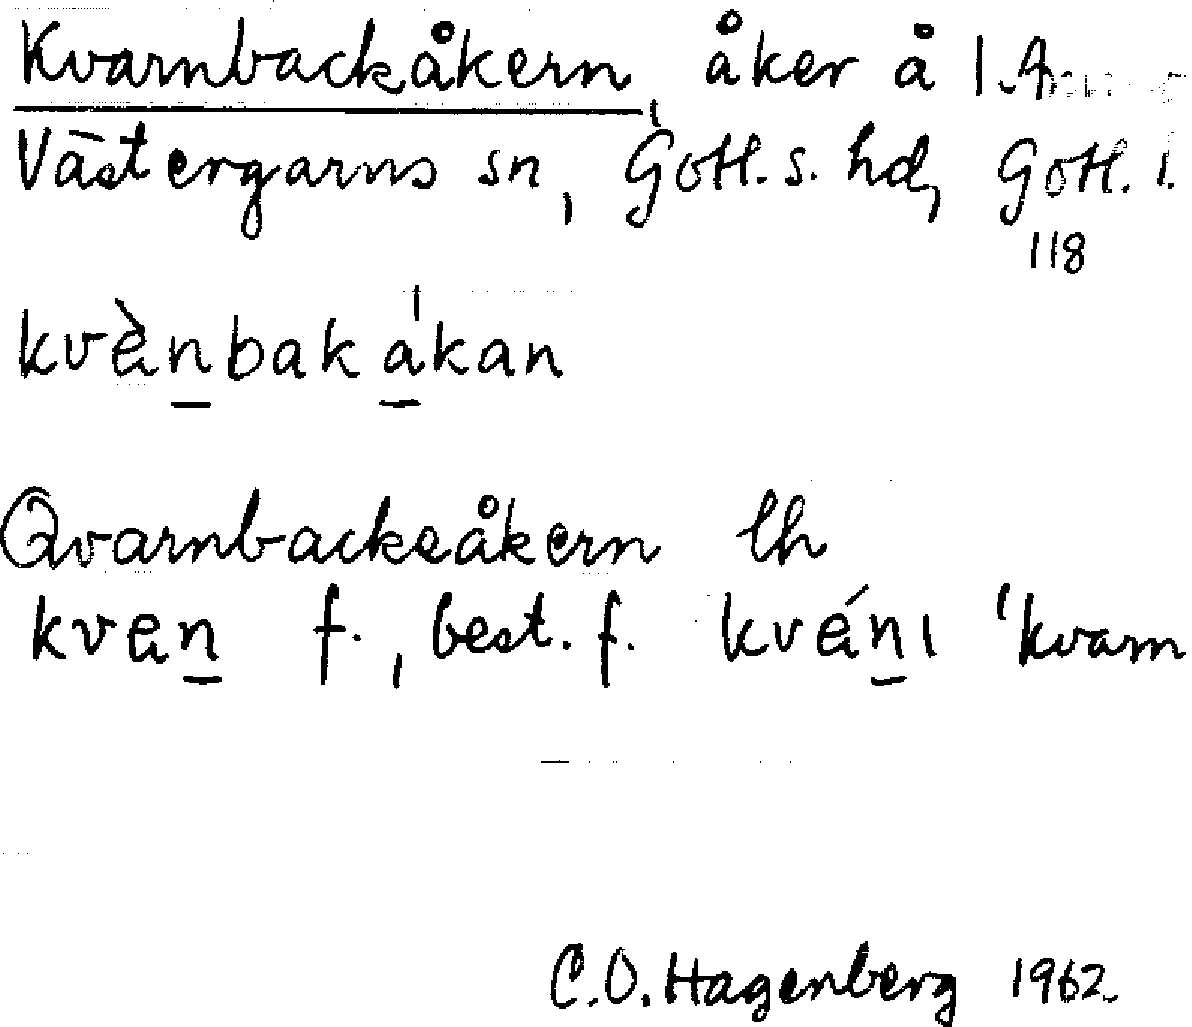 Kvarnbackåkern, åker å 1.A
Västergarns sn, Gotl. s. hd, Gotl. l.
118
kvènbakákan
Qvarnbackeåkern lh
kven f., best. f. kvénı 'kvarn
C.O. Hagenberg 1962